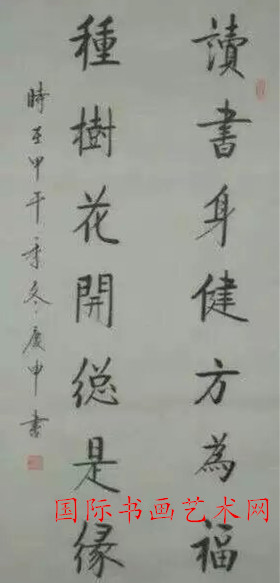 讀書身健方為福
種樹花開總是緣
時在甲午年冬慶申書
国际书画艺术网